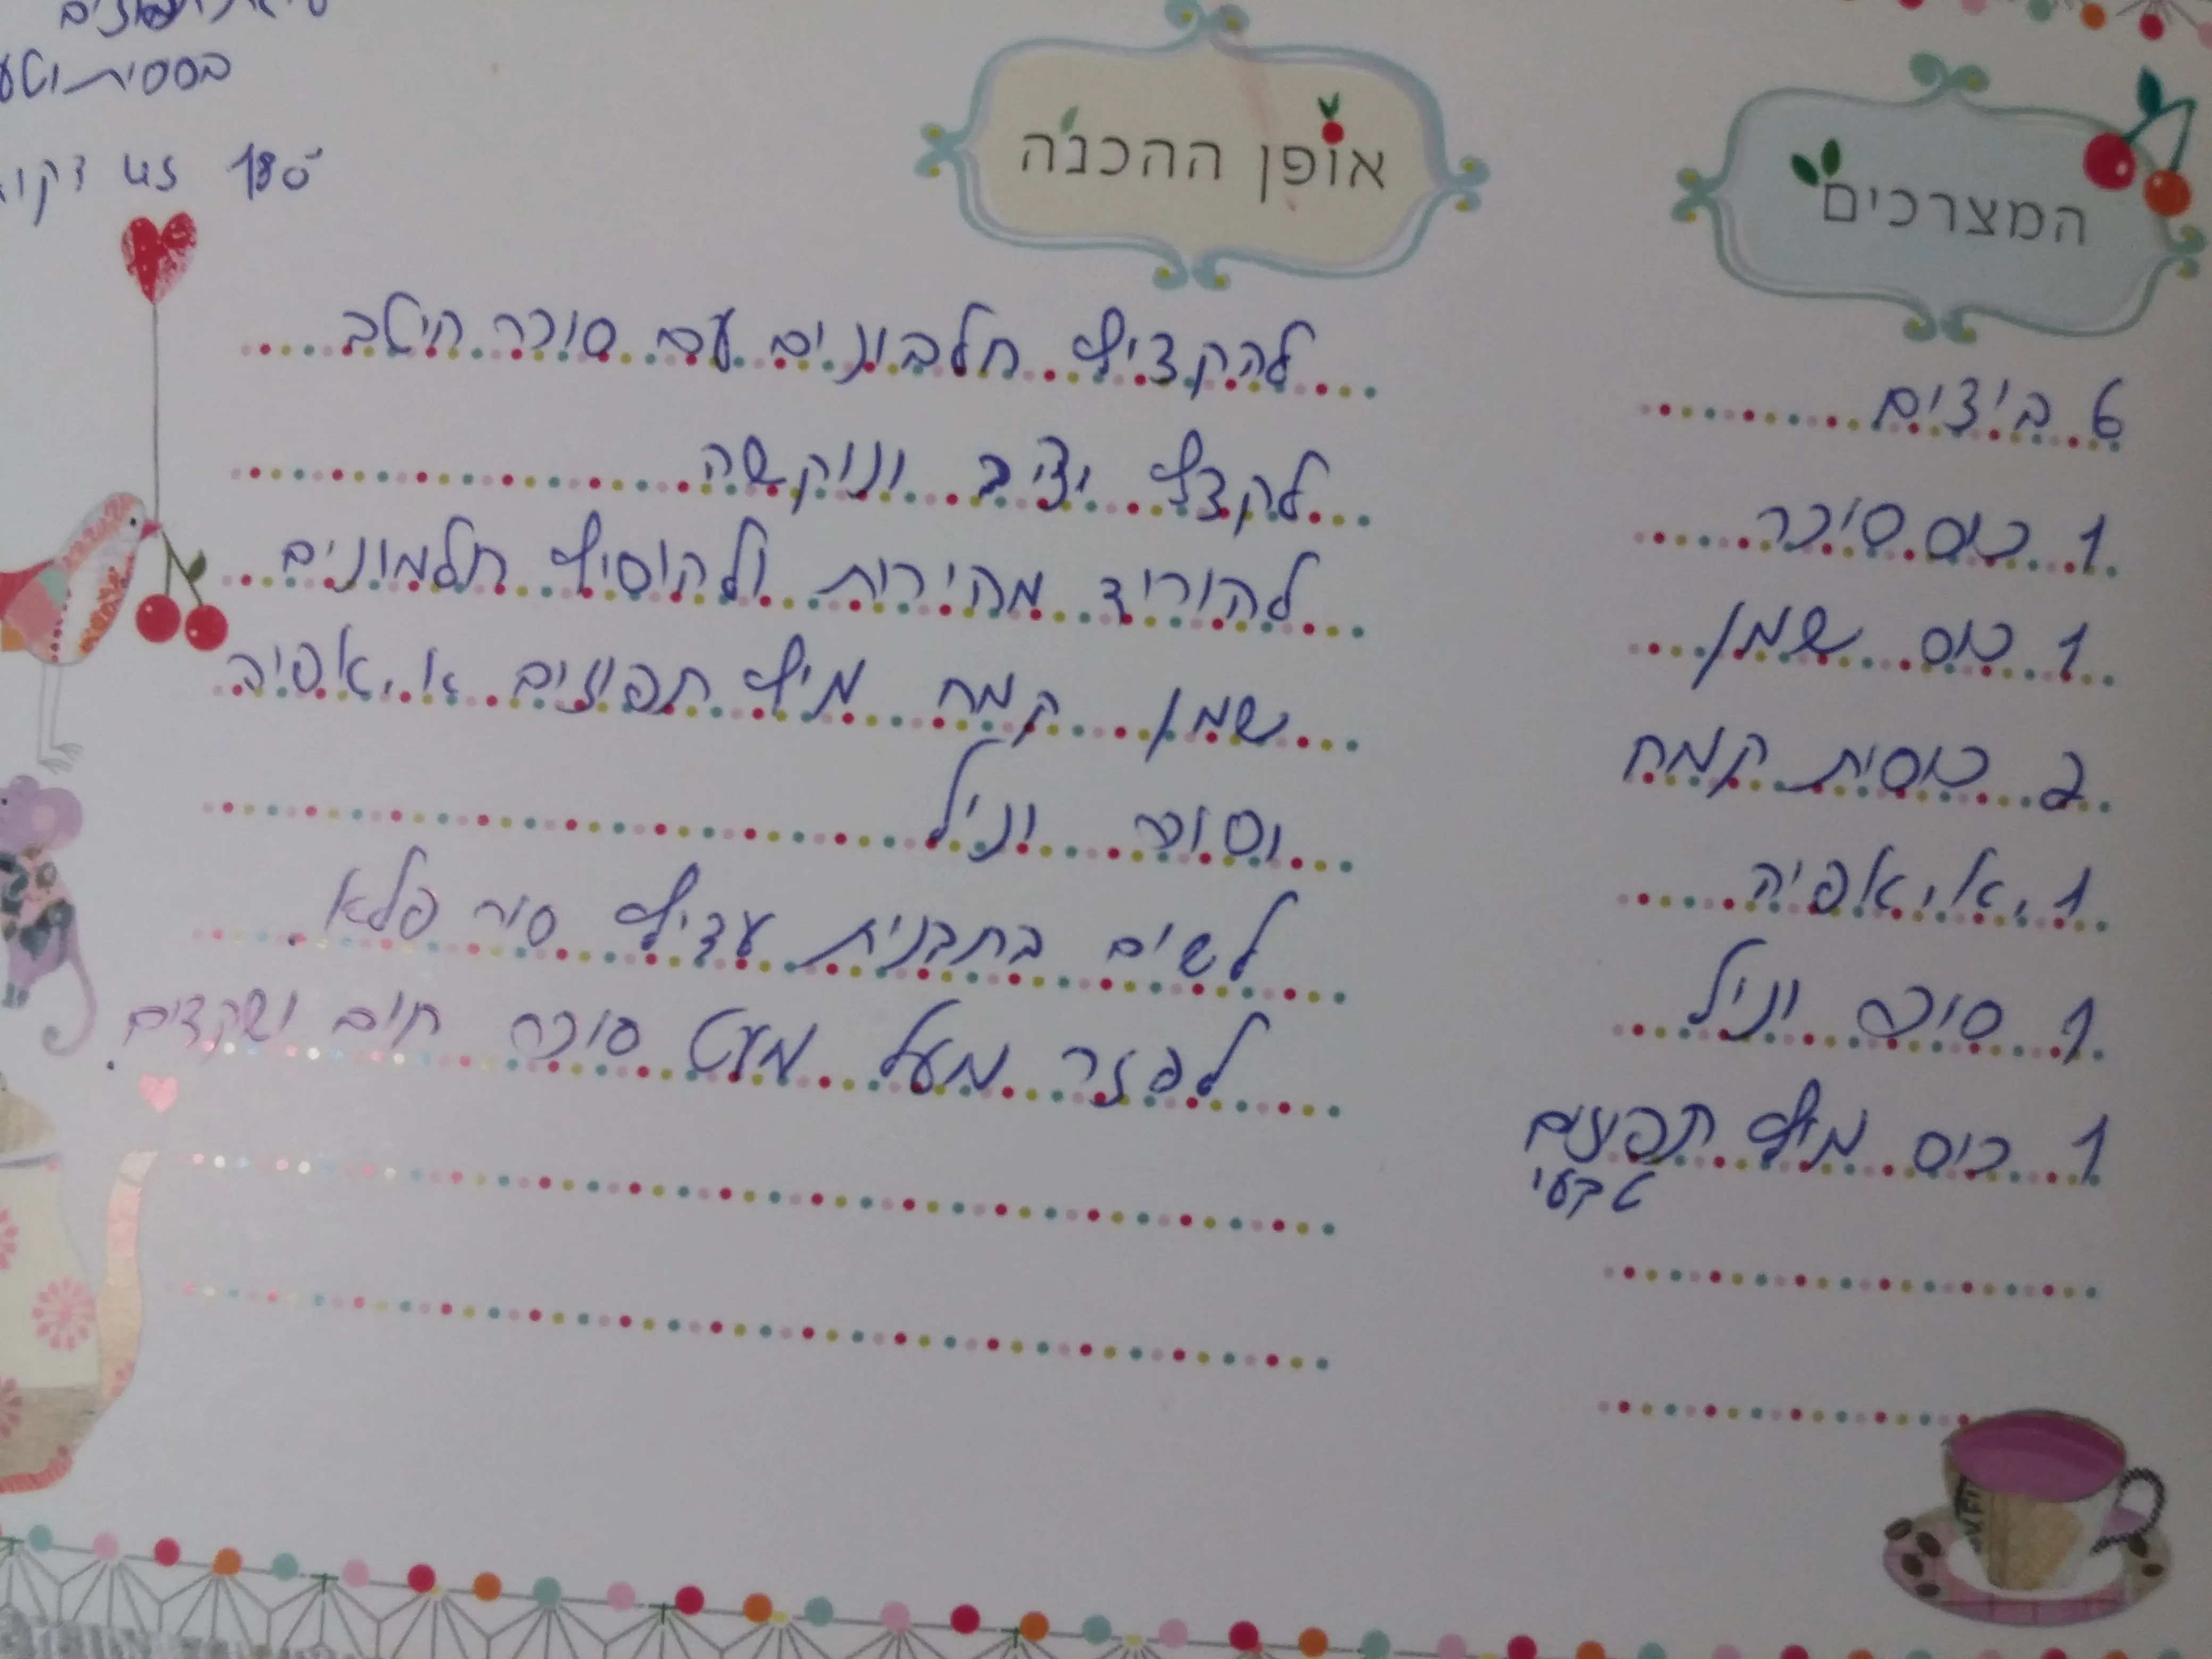 180° דקו
אופן ההכנה
המצרכים
להקציף חלבונים עם סוכר היטב
לקצף יציב ונוקשה
להוריד מהירות ולהוסיף חלמונים
שמן קמח מיץ תפוזים א.אפיה
וסוכר וניל
לשים בתבנית עדיף סיר פלא.
לפזר מעל מעט סוכר חום ושקדים.
6 ביצים
1 כוס סוכר
1 כוס שמן
2 כוסות קמח
1 א. אפיה
1 סוכר וניל
1 כוס מיץ תפוזים
טבעי